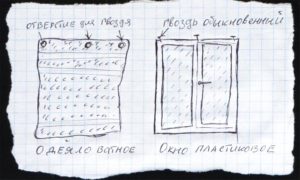 ОТВЕРСТИЕ ДЛЯ ГВОЗДЯ
ГВОЗДЬ ОБЫКНОВЕННЫЙ
ОДЕЯЛО ВАТНОЕ
ОКНО ПЛАСТИКОВОЕ